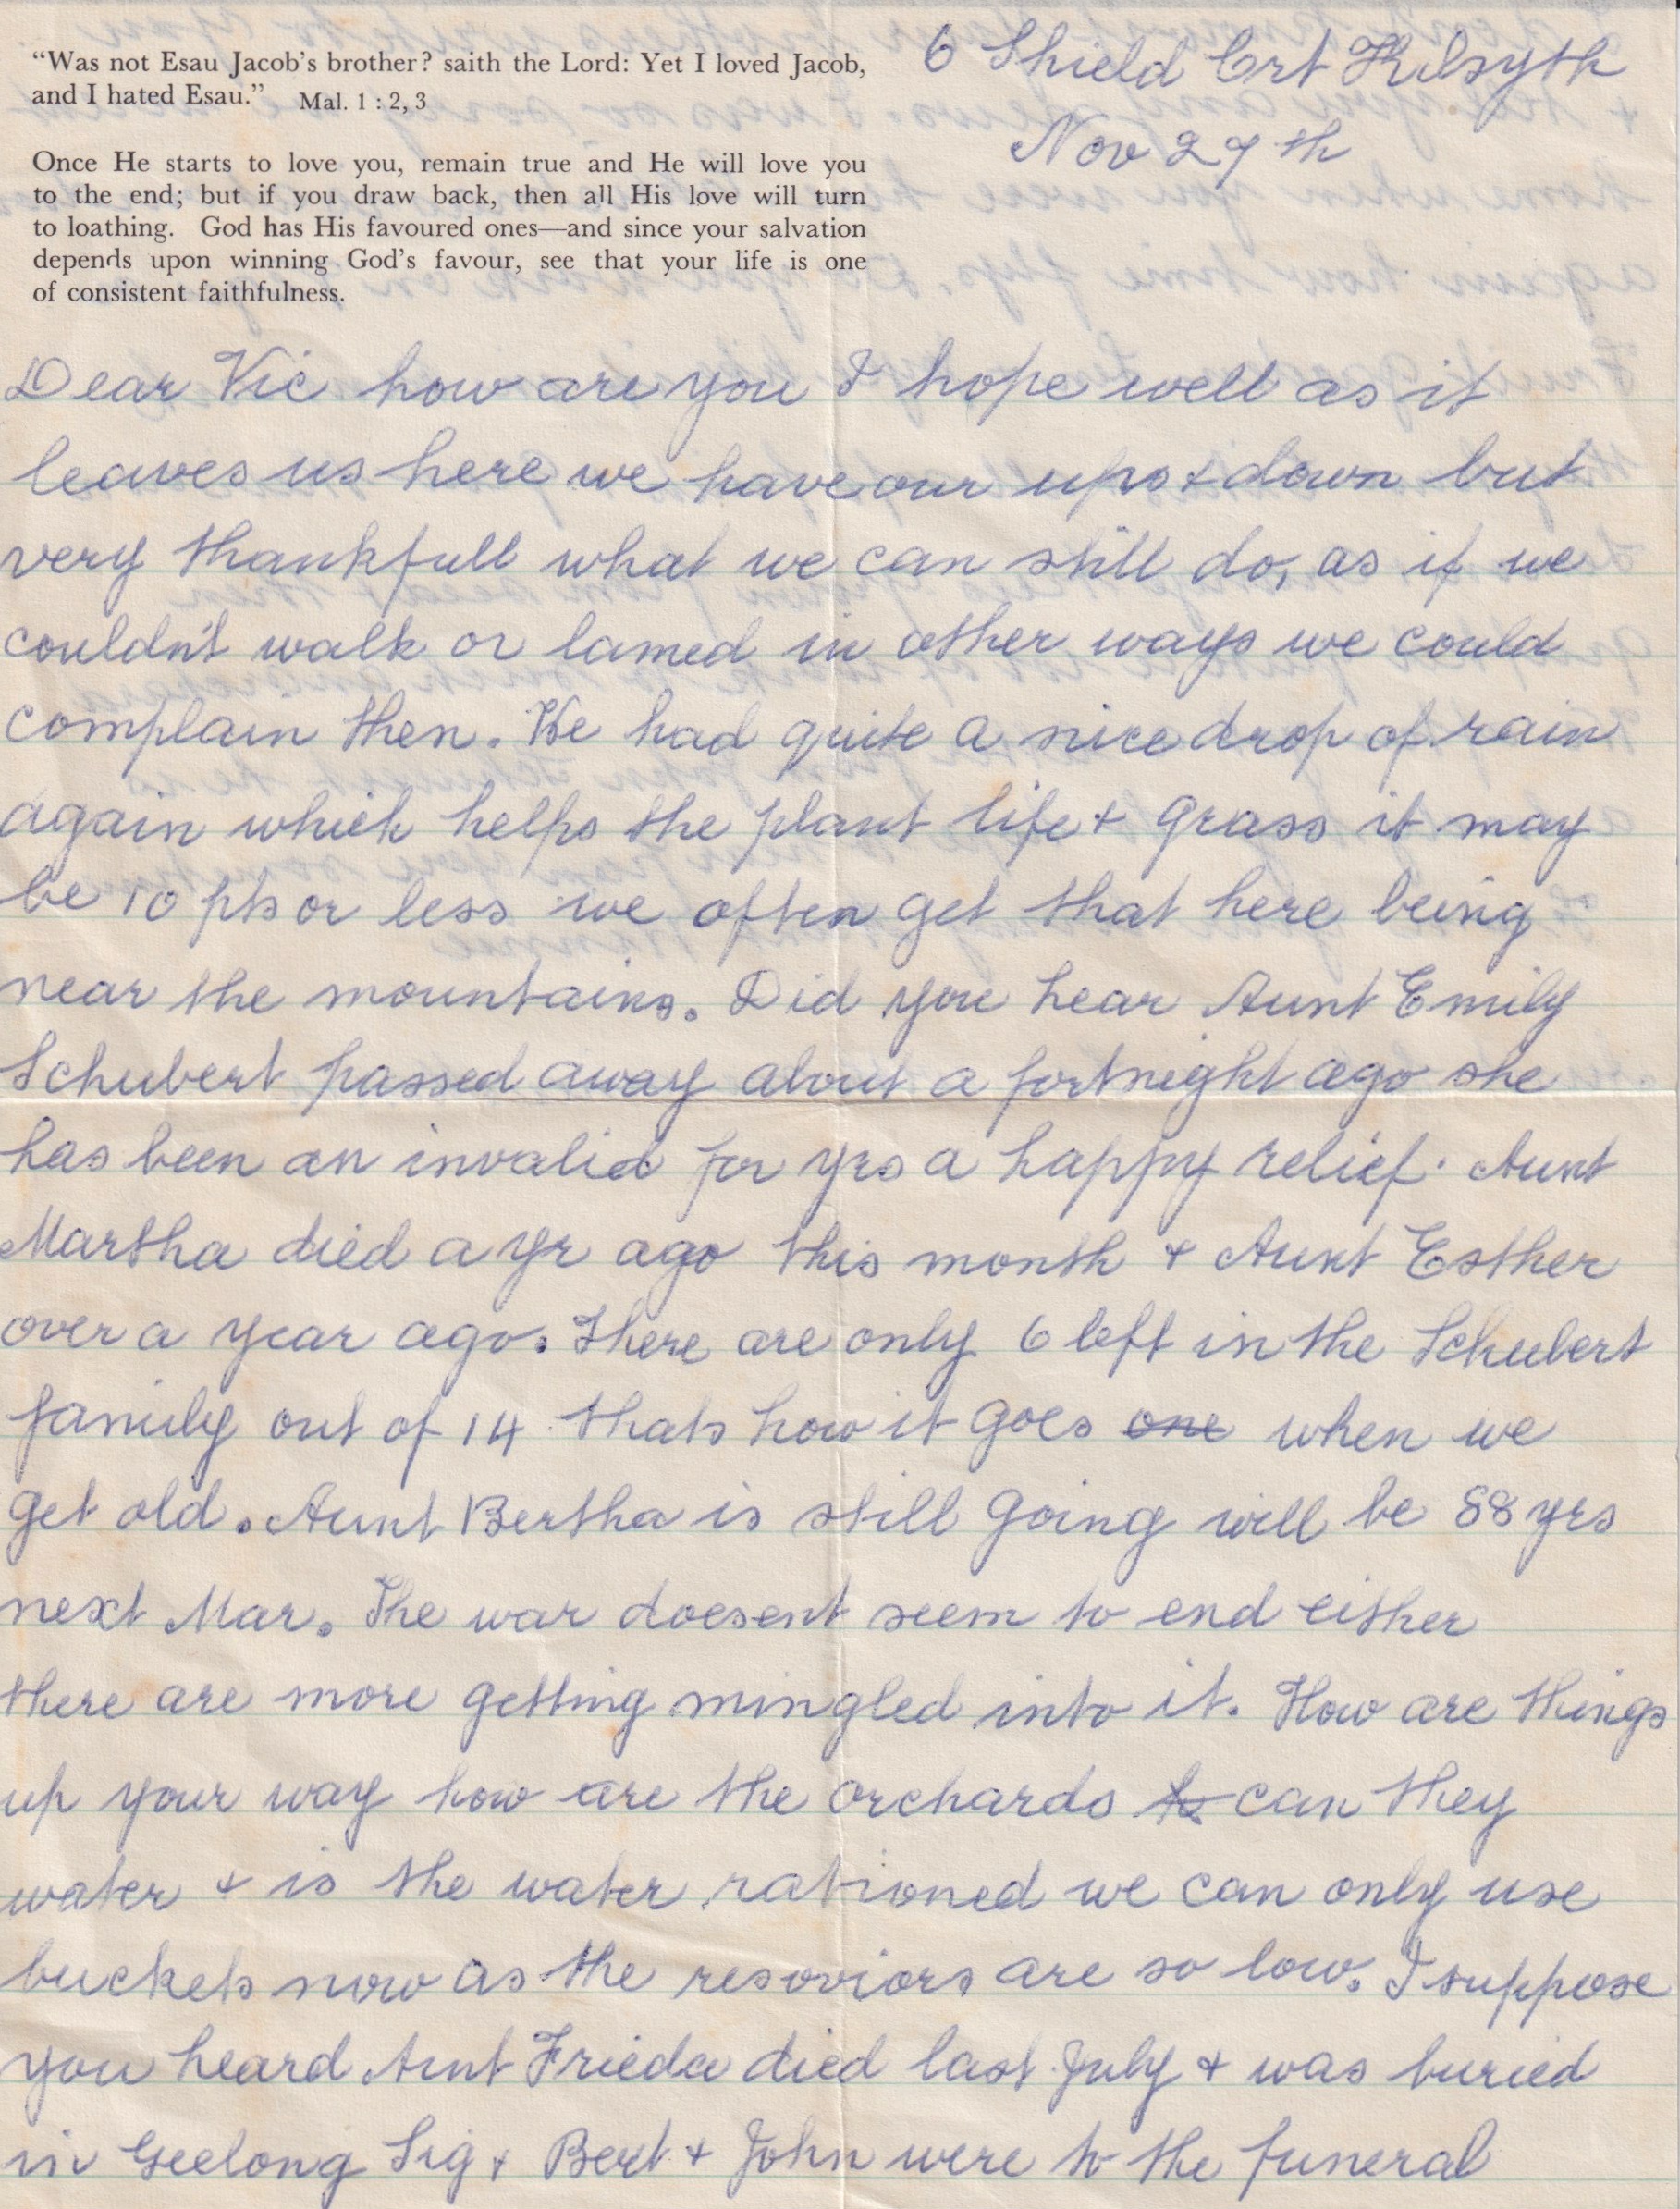 "Was not Esau Jacob's brother? saith the Lord: Yet I loved Jacob,
and I hated Esau." Mal. 1 : 2, 3
Once He starts to love you, remain true and He will love you
to the end; but if you draw back, then all His love will turn
to loathing. God has His favoured ones—and since your salvation
depends upon winning God's favour, see that your life is one
of consistent faithfulness.
6 Shield Crt Kilsyth
Nov 27th
Dear Vic how are you I hope well as it
leaves us here we have our ups + down but
very thankfull what we can still do, as if we
couldn't walk or lamed in other ways we could
complain then. We had quite a nice drop of rain
again which helps the plant life + grass it may
be 10 pts or less we often get that here being
near the mountains. Did you hear Aunt Emily
Schubert passed away about a fortnight ago she
has been an invalid for yrs a happy relief. Aunt
Martha died a yr ago this month + Aunt Esther
over a year ago. There are only 6 left in the Schubert
family out of 14 thats how it goes one when we
get old. Aunt Bertha is still going will be 88 yrs
next Mar. The war doesent seem to end either
there are more getting mingled into it. How are things
up your way how are the orchards to can they
water + is the water rationed we can only use
buckets now as the resoviors are so low. I suppose
you heard Aunt Frieda died last July + was buried
in Geelong Sig + Bert + John were to the funeral